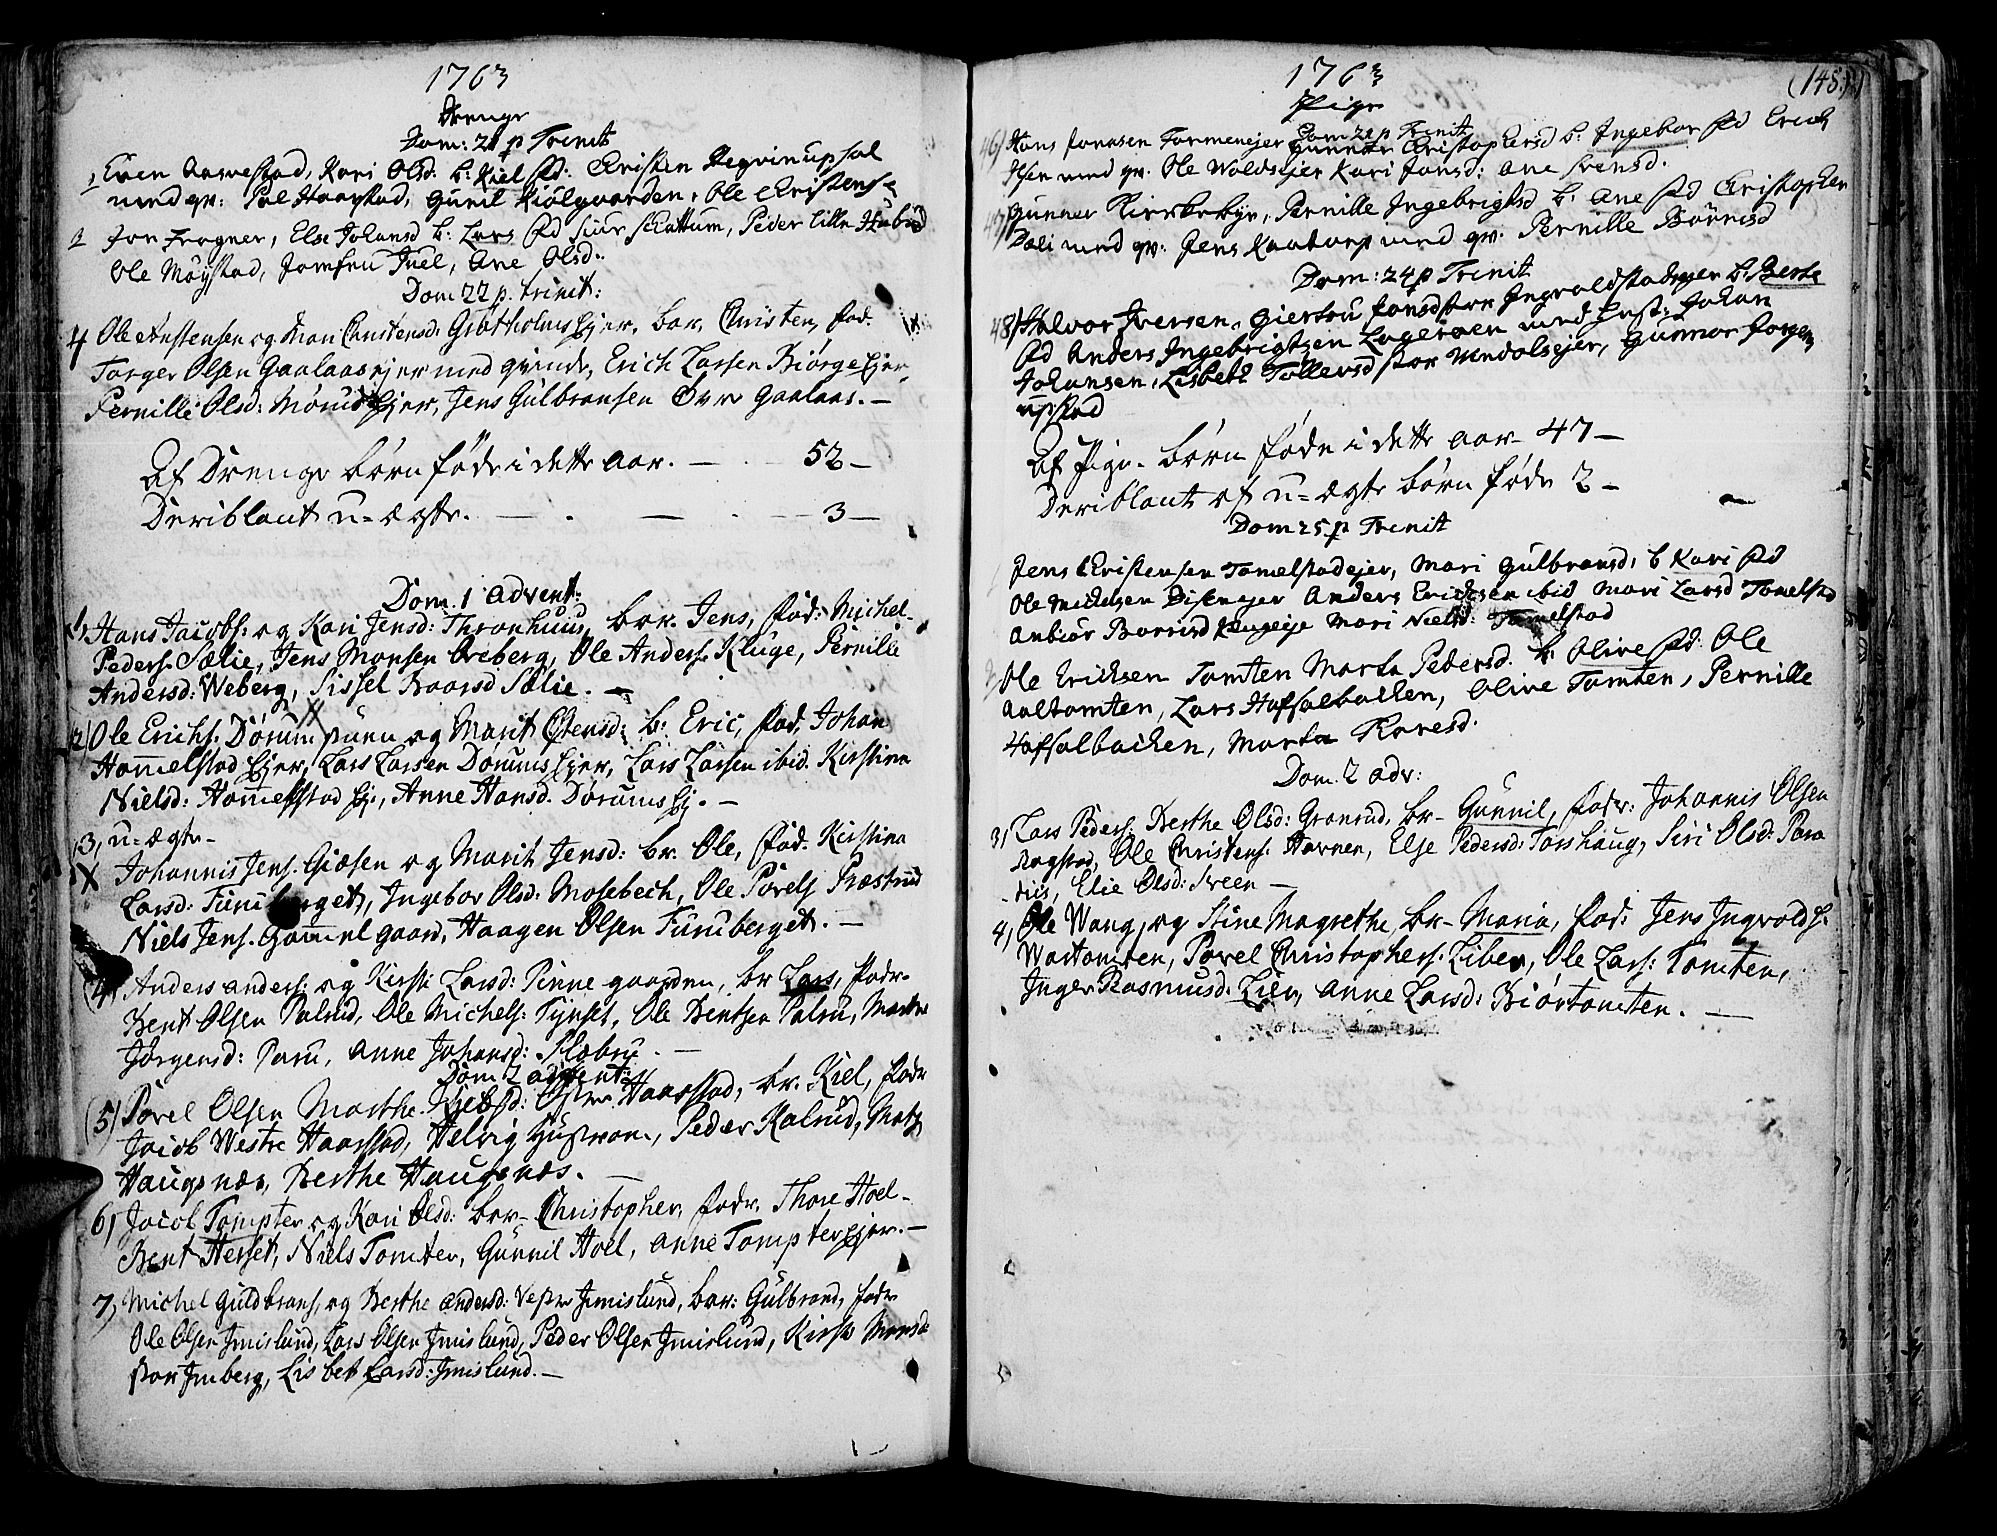 1763
Drenge
Dom: 21 p Trinit
1, Even Aarvestad, Kari Olsd: b: Kiel fad: Cristen
med qv: Pal Haarstad, Gunil Kiølgaarden, Ole Cristens
2 Jon Frogner, Else Johansd b: Lars fad Siur Schattum, Peder Lille
Ole Møystad, Jomfru Juel, Ane Olsd.
Dom 22 p. trinit:
4 Ole Anstensen og Mari Christensd: Grøtholms Ejer, bar, Christen, fad.
Torger Olsen Gaalaas ejer med qvinde, Erich Larsen Biørge Ejer,
Pernille Olsd: Ejer, Jens Gulbransen Øvre Gaalaas. —
Af Drenge børn føde i dette aar. — 52 —
Deriblant u=ægte. — . — . — 3 —
Dom. 1 Advent:
1) Hans Jacobs: og Kari Jensd: Thronhuus, bar. Jens, fad: Michel
Peders. Sælie, Jens Monsen Oreberg, Ole Anders. Kluge, Pernille
Andersd: Weberg, Sissel Baarsd Sælie. —
2) Ole Erichs. Dørum og Marit Østensd: b: Eric, fad. Johan
Hommelstad Ejer, Lars Larsen Dørums Ejer, Lars Larsen ibid. Kirstina
Nielsd: Hommelstad Ej., Anne Hansd. Dørums Ej. —
3, u=ægte —
Johannis Jens. Giæsen og Marit Jensd: br. Ole, fad. Kirstina
Larsd: Furuberget, Ingebor Olsd: Mosebech, Ole Povels. Præstrud
Niels Jens. Gammelgaard, Haagen Olsen Furuberget. —
(4) Anders Anders: og Kirsti Larsd: Finnegaarden, br Lars, fadr.
Bent Olsen Palrud, Ole Michels: Tynset, Ole Bentsen Palru, Marthe
Jørgensd: Paru, Anne Johansd: Slæbru. —
Dom. 2 advent:
(5) Povel Olsen Marthe Østre Haarstad, br: Kiel, fadr
Jacob Westre Haarstad, Helvig Hustrom, Peder Kalrud, Matz
Haugsnæs, Berthe Haugsnæs. —
6) Jacob Tompter og Kari Olsd: bar. Christopher, fadr. Thore Hoel
Bent Herset, Niels Tomter, Gunnil Hoel, Anne Tompter Ejer. —
7) Michel Guldbrans. og Berthe Andersd: Vestre Imislund, bar: Gulbrand, fadr
Ole Olsen Imislund, Lars Olsen Imislund, Peder Olsen Imislund, Kirsti Monsd
Stor Imberg, Lisbet Larsd: Imislund. —
1763
(148.)
Pige
Dom 21 p Trinit
46) Hans Jonasen Formenejer Gunnor Cristophersd b: Ingebor fad Erich
med qv. Ole Woldsejer Kari Jonsd: Ane Svensd.
47) Gunner Kirkebye, Pernille Ingebrigtsd b: Ane fad Cristopher
Dæli med qv: Jens Kaatorp med qv. Pernille Børrisd
Dom: 24 p Trinit
48) Halvor Iversen, Giertru Jonsd stor Ingvaldstadejer b: Berte
fad Anders Ingebrigtsen Lageroen med hust: Johan
Johansen, Lisbeth Tollersd stor Wendalsejer, Gunnor Jorgens
opstad
Af Pige børn føde i dette aar — 47 —
Deriblant af u=ægte børn føde 2 —
Dom 25 p Trinit
Jens Cristensen Tomelstadejer, Mari Gulbransd, b Kari fad
Ole Mickelsen Disenejer Anders Ericksen ibid Mari Larsd Tomelstad
Anbiør Borrisd Mari Nielsd: Tomelstad
Ole Ericksen Tomten Marta Pedersd. b: Olive fad: Ole
Aaltomten, Lars Hafsalbacken, Olive Tomten, Pernille
Hafsalbacken, Marta Karesd.
Dom. 2 adv:
3) Lars Peders: Berthe Olsd: Granrud, br— Gunnil, fadr: Johannis Olsen
Rogstad, Ole Christens. Havnen, Else Pedersd: Torshaug, Siri Olsd: Para
diis, Elie Olsd: Sveen —
4) Ole Wang, og Stine Magrethe, br— Maria, fad: Jens Ingvolds.
Wartomten, Povel Christophers. Liber, Ole Lars: Tomten,
Inger Rasmusd. Lier, Anne Larsd: Biørtomten. —